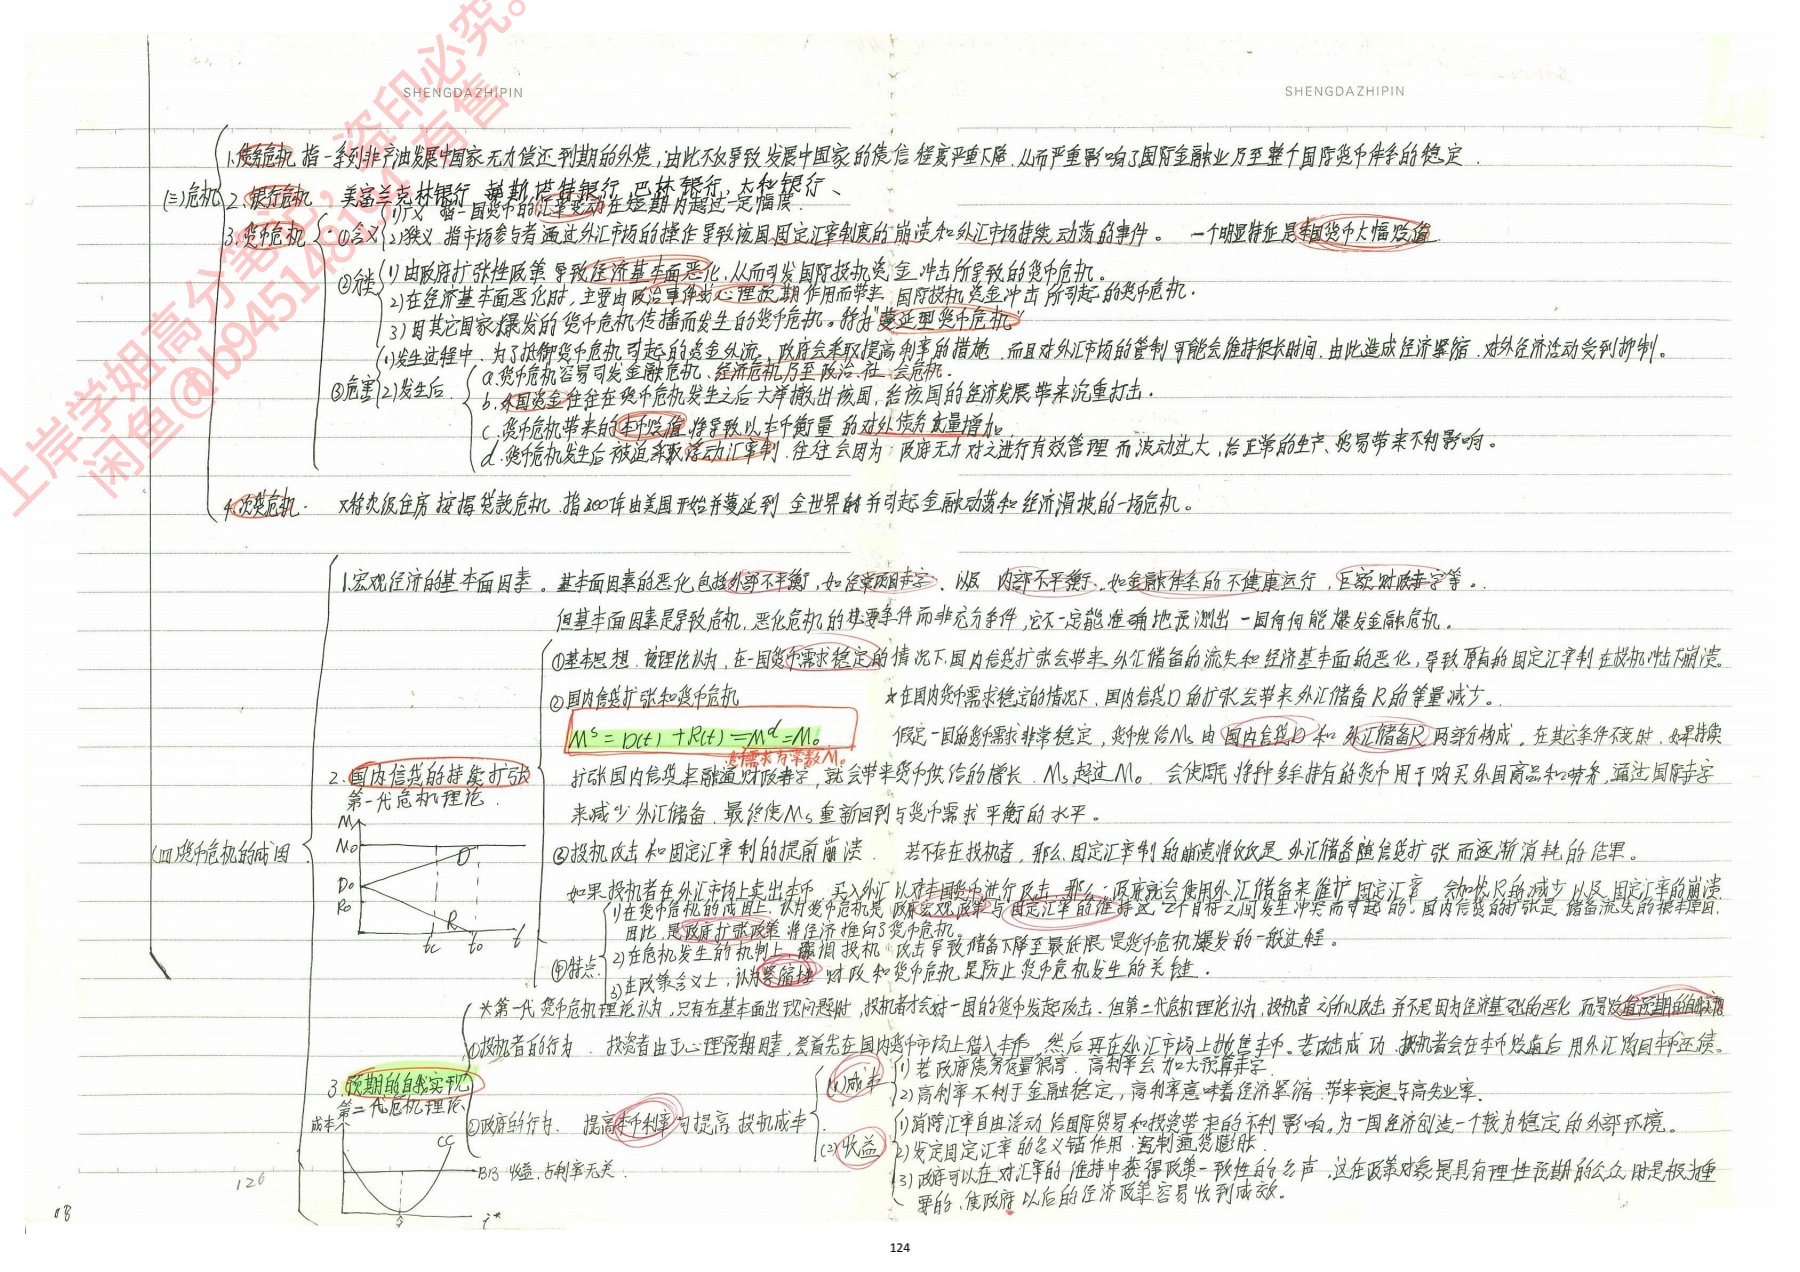 上岸学姐高分笔记，盗印必究。
闲鱼@b94514819 有售
SHENGDAZHIPIN
SHENGDAZHIPIN
(三)危机
1.债务危机 指一系列非产油发展中国家无力偿还到期的外债，由此不仅导致发展中国家的债信程度严重下降，从而严重影响了国际金融业乃至整个国际货币体系的稳定
2、银行危机 美富兰克林银行，赫斯塔特银行，巴林银行，大和银行、
3.货币危机
①含义
1)广义 指一国货币的汇率变动在短期内超过一定幅度.
2)狭义 指市场参与者通过外汇市场的操作导致该国固定汇率制度的崩溃和外汇市场持续动荡的事件。 一个明显特征是本国货币大幅贬值
②分类
1)由政府扩张性政策导致经济基本面恶化，从而引发国际投机资金冲击所导致的货币危机。
2)在经济基本面恶化时，主要由政治事件或心理预期作用而带来国际投机资金冲击所引起的货币危机.
3)因其它国家爆发的货币危机传播而发生的货币危机。称为"蔓延型货币危机"
③危害
(1)发生过程中.为了抵御货币危机引起的资金外流，政府会采取提高利率的措施，而且对外汇市场的管制可能会维持很长时间，由此造成经济紧缩，对外经济活动受到抑制。
(2)发生后
a.货币危机容易引发金融危机、经济危机乃至政治、社会危机.
b.外国资金往往在货币危机发生之后大举撤出该国，给该国的经济发展带来沉重打击.
c.货币危机带来的本币贬值将导致以本币衡量的对外债务数量增加
d.货币危机发生后被迫采取浮动汇率制，往往会因为政府无力对之进行有效管理而波动过大，给正常的生产、贸易带来不利影响。
4.次贷危机. 又称次级住房按揭贷款危机.指2007年由美国开始并蔓延到全世界的并引起金融动荡和经济滑坡的一场危机。
(四)货币危机的成因
1.宏观经济的基本面因素。基本面因素的恶化包括外部不平衡，如经常项目赤字，以及内部不平衡，如金融体系的不健康运行，巨额财政赤字等。
但基本面因素是导致危机，恶化危机的必要条件而非充分条件，它不一定能准确地预测出一国何时能爆发金融危机。
2.国内信贷的持续扩张
第一代危机理论.
①基本思想.该理论认为，在一国货币需求稳定的情况下，国内信贷扩张会带来外汇储备的流失和经济基本面的恶化，导致原有的固定汇率制在投机冲击下崩溃.
②国内信贷扩张和货币危机 *在国内货币需求稳定的情况下，国内信贷D的扩张会带来外汇储备R的等量减少。
Mˢ=D(t)+R(t)=Mᵈ=M₀
需求为常数M₀
假定一国的货币需求非常稳定，货币供给Ms由国内信贷D和外汇储备R两部分构成。在其它条件不变时，如果持续
扩张国内信贷来融通财政赤字，就会带来货币供给的增长，Ms超过M₀，会使居民将种多余持有的货币用于购买外国商品和劳务，通过国际赤字
来减少外汇储备，最终使Ms重新回到与货币需求平衡的水平。
③投机攻击和固定汇率制的提前崩溃. 若不存在投机者，那么，固定汇率制的崩溃将仅仅是外汇储备随信贷扩张而逐渐消耗的结果。
如果投机者在外汇市场上卖出本币、买入外汇以对本国货币进行攻击，那么，政府就会使用外汇储备来维护固定汇率，会加快R的减少以及固定汇率的崩溃
④特点
1)在货币危机的成因上，认为货币危机是政府宏观政策与固定汇率的维持这2个目标之间发生冲突而引起的.国内信贷的扩张是储备流失的根本原因.
因此，是政府扩张政策将经济推向了货币危机。
2)在危机发生的机制上，强调投机攻击导致储备下降至最低限是货币危机爆发的一般过程。
3)在政策含义上，认为紧缩性财政和货币危机是防止货币危机发生的关键.
M
M₀
D₀
R₀
D
R
tc t₀ t
3.预期的自我实现
第二代危机理论
*第一代货币危机理论认为，只有在基本面出现问题时，投机者才会对一国的货币发起攻击.但第二代危机理论认为，投机者之所以攻击并不是因为经济基础的恶化而是贬值预期的自我实现
①投机者的行为. 投资者由于心理预期因素，会首先在国内货币市场上借入本币，然后再在外汇市场上抛售本币。若攻击成功，投机者会在本币贬值后用外汇购回本币还债。
②政府的行为. 提高本币利率可提高投机成本
(1)成本
1)若政府债务存量很高，高利率会加大预算赤字.
2)高利率不利于金融稳定，高利率意味着经济紧缩.带来衰退与高失业率.
(2)收益
1)消除汇率自由浮动给国际贸易和投资带来的不利影响。为一国经济创造一个较为稳定的外部环境。
2)发定固定汇率的名义锚作用.遏制通货膨胀.
3)政府可以在对汇率的维持中获得政策一致性的名声，这在政策对象是具有理性预期的公众时是极为重
要的，使政府以后的经济政策容易收到成效。
成本
CC
BB 收益，与利率无关.
i*
126
118
124